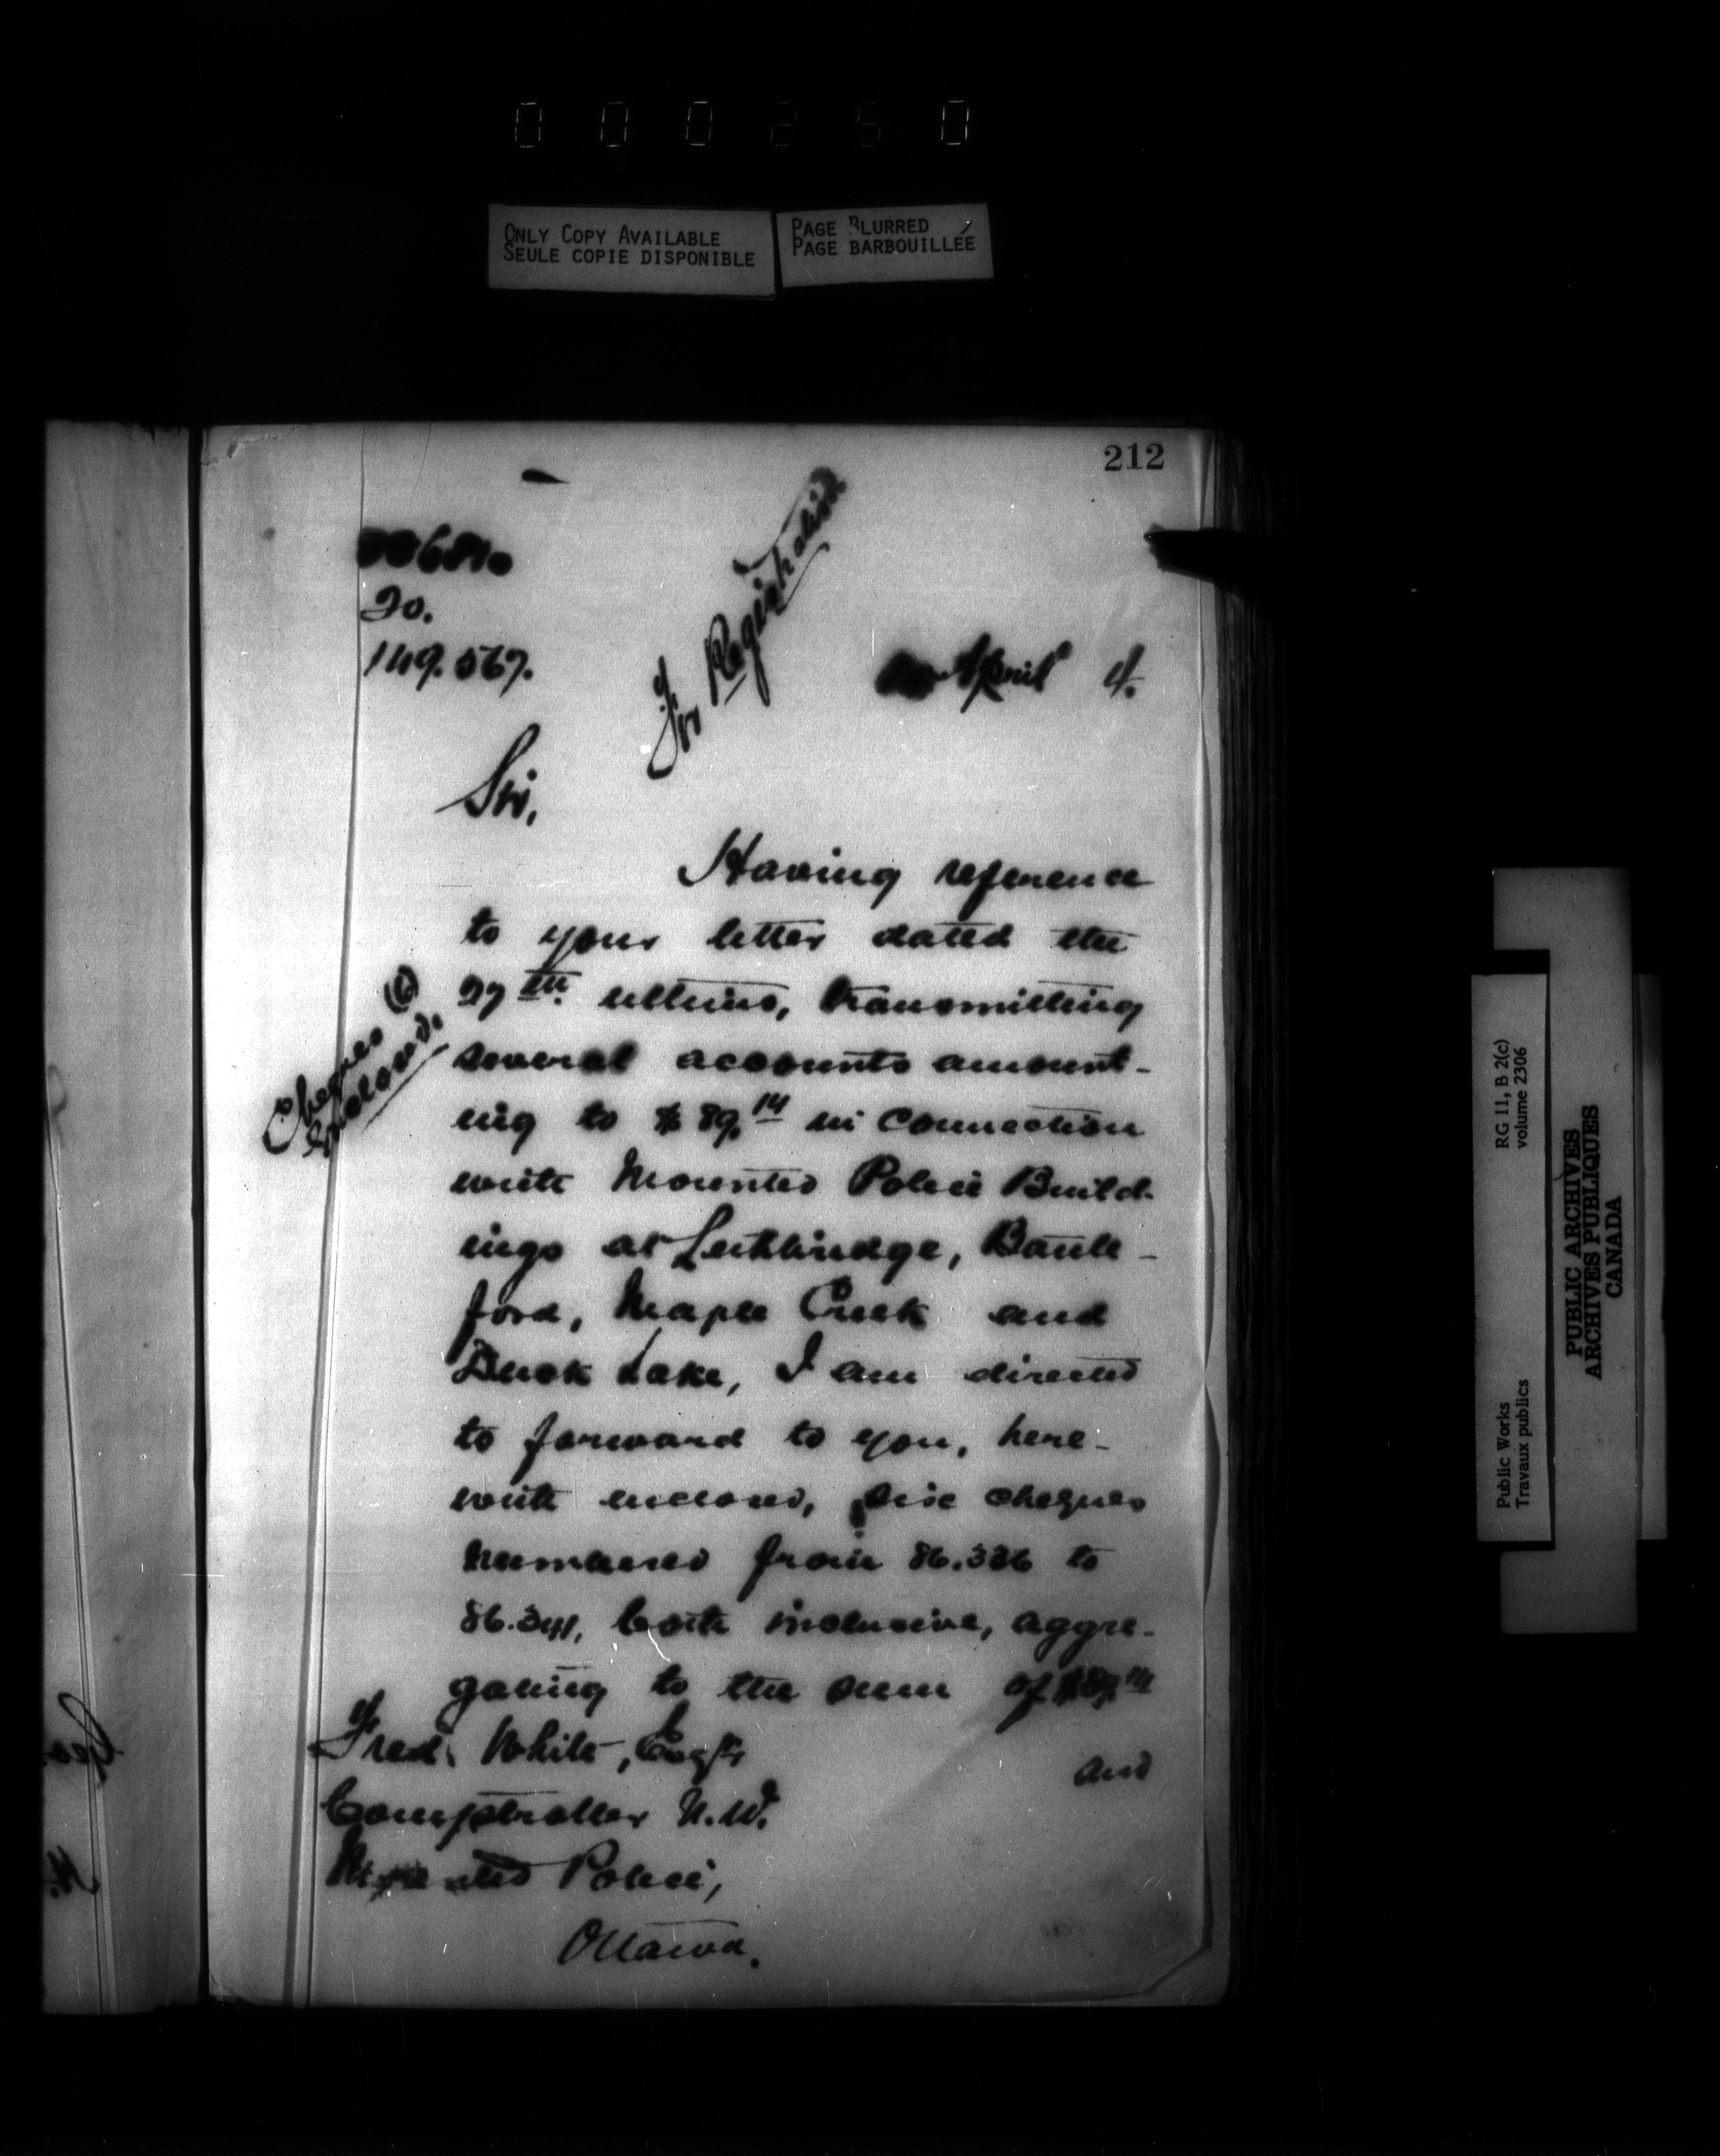 0 0 0 2 5 0
ONLY COPY AVAILABLE
SEULE COPIE DISPONIBLE
PAGE BLURRED
PAGE BARBOUILLÉE
212
20.
149.567.
April 4.
Sir,
Having reference
to your letter dated the
27th. ultimo, transmitting
several accounts amount-
ing to $89.14 in connection
with Mounted Police Build-
ings at Lethbridge, Battle-
ford, Maple Creek and
Duck Lake, I am directed
to forward to you, here-
with enclosed, six cheques
numbered from 86.336 to
86.341, both inclusive, aggre-
gating to the sum of $89.14
and
Cheques (6)
enclosed.
Fred. White, Esqr.
Comptroller N.W.
Mounted Police,
Ottawa.
RG 11, B 2(c)
volume 2306
Public Works
Travaux publics
PUBLIC ARCHIVES
ARCHIVES PUBLIQUES
CANADA